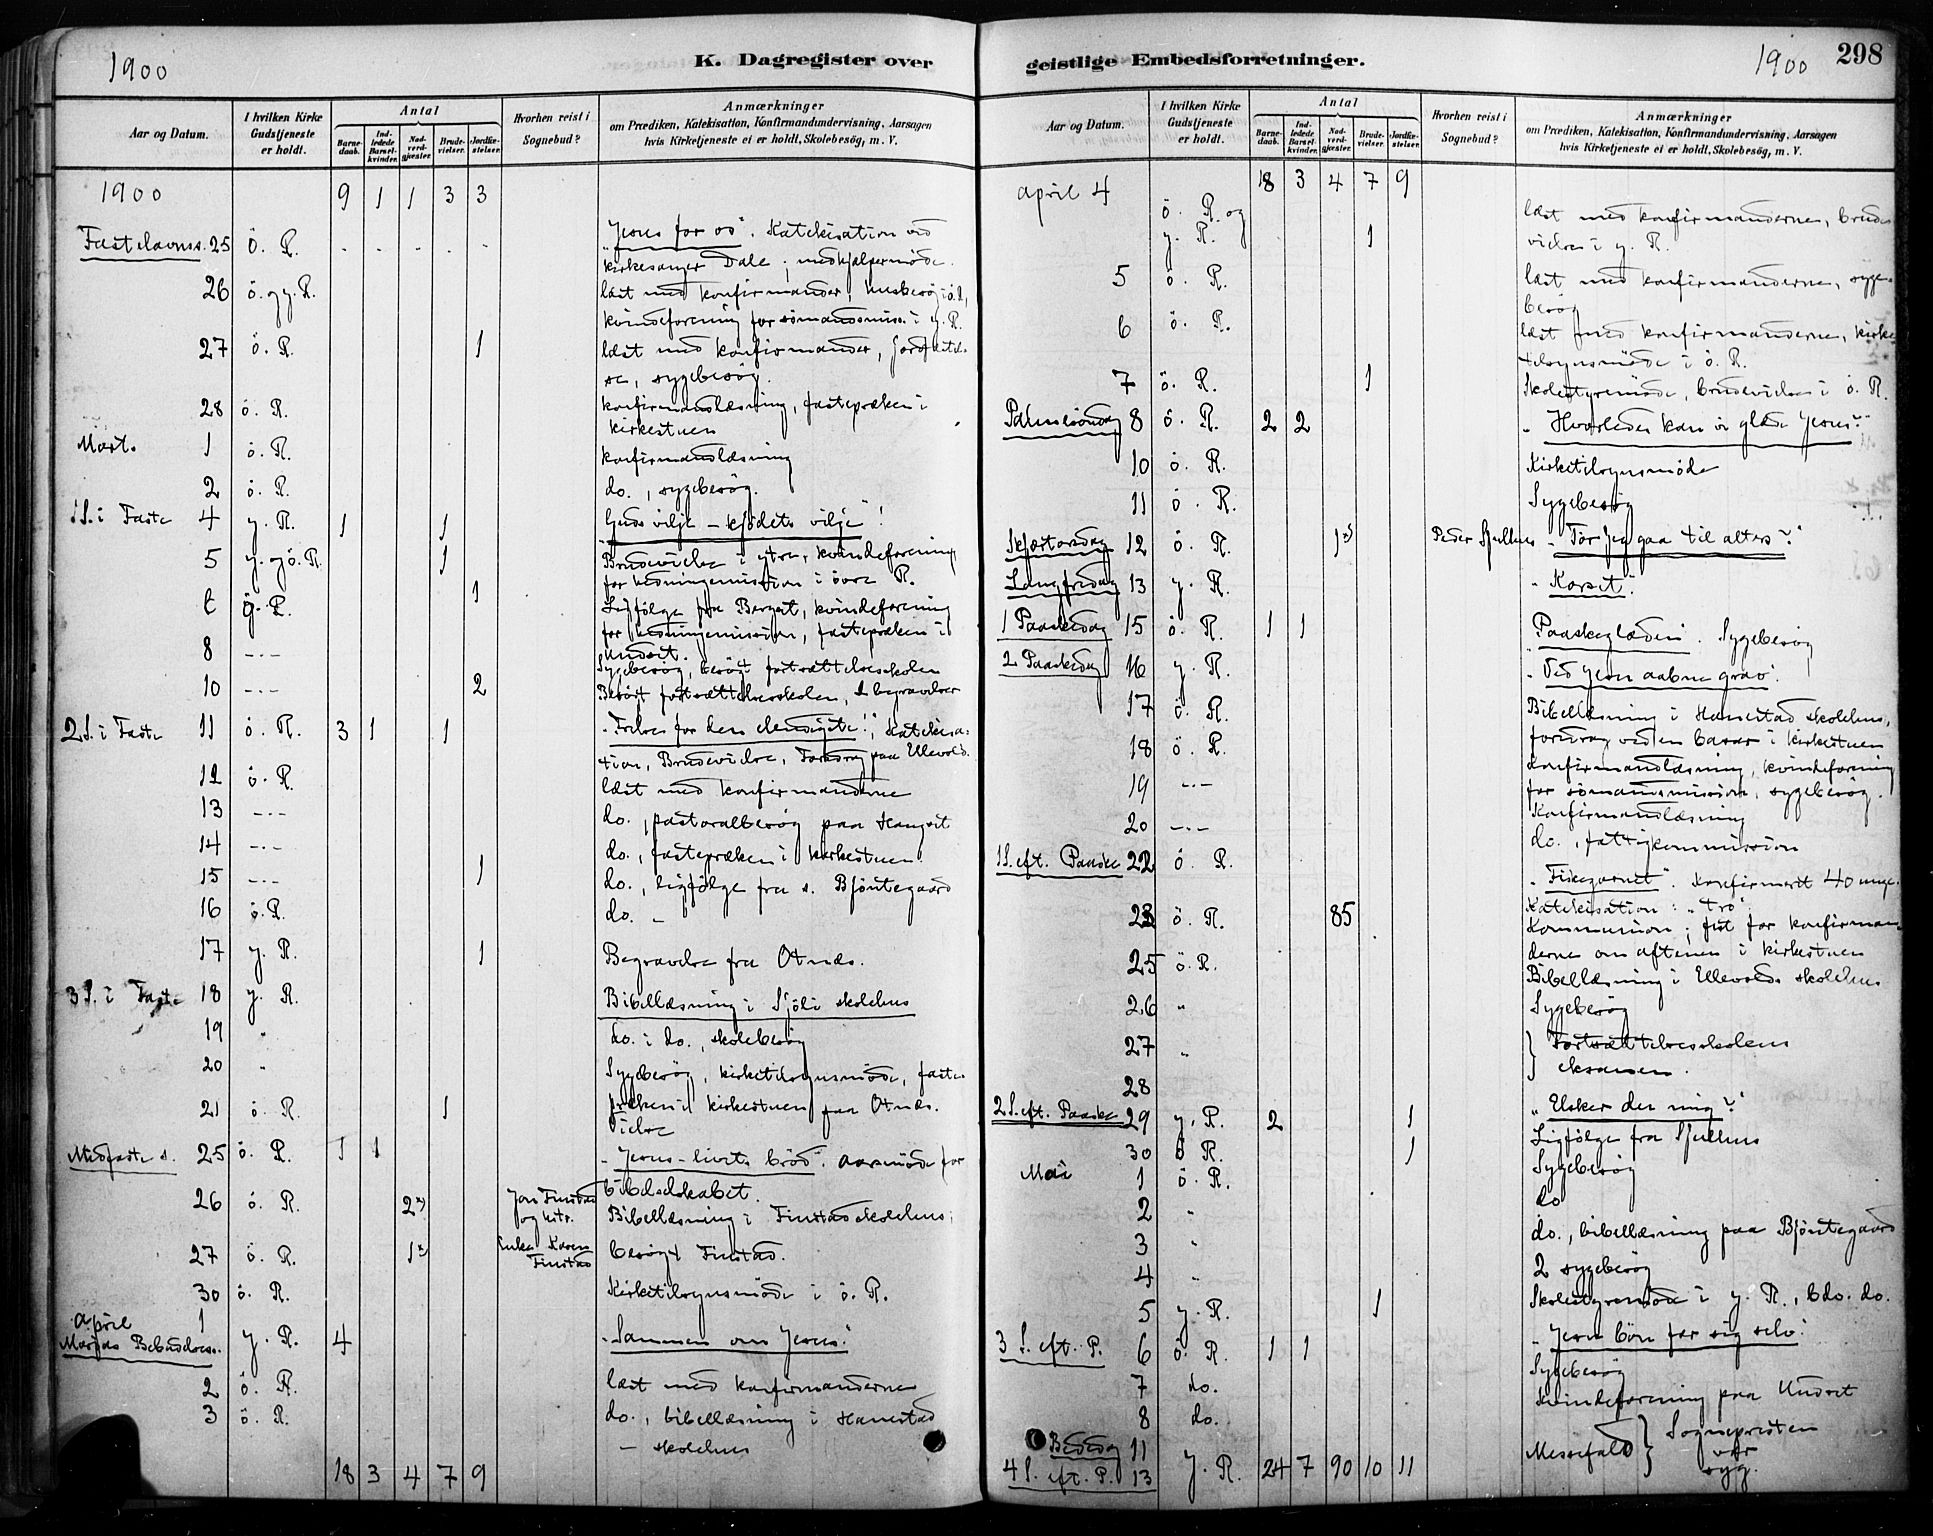 1900
K. Dagregister over
Aar og Datum.
I hvilken Kirke Gudstjeneste er holdt.
Antal
Barnedaab.
Indledede Barselkvinder.
Nadverdgjester.
Brudevielser.
Jordfæstelser.
Hvorhen reist i Sognebud?
Anmærkninger
om Prædiken, Katekisation, Konfirmandundervisning, Aarsagen
hvis Kirketjeneste ei er holdt, Skolebesøg, m. V.
1900 9 1 1 3 3
Fastelavnss. 25 ö. R. „Jesus for os“. Katekisation ved
kirkesanger Dale; medhjælpermöde.
26 ö. og y. R. læst med konfirmander, husbesøg i ö. R.,
kvindeforening for sömandsmiss. i y. R.
27 ö. R. 1 læst med konfirmander, jordfæstel-
se, sygebesög.
28 ö. R. konfirmandlæsning, fastepræken i
kirkestuen
Mart. 1 ö. R. konfirmandlæsning
2 ö. R. do., sygebesög.
1 S. i Faste 4 y. R. 1 1 Guds vilje – kjödets vilje!
5 y. og ö. R. 1 Brudevielse i ytre, kvindeforening
for hedningemission i övre R.
R. 1 Ligfölge fra Berget, kvindeforening
for hedningemission, fastepræken i
Undset.
8 –„– Sygebesög, besögt fortsættelsesskolen
10 –„– 2 Besögt fortsættelsesskolen, 2 begravelser
2 S. i Faste 11 ö. R. 3 1 1 „Frelse for den elendigste!“, Katekisa-
tion, Brudevielse, Foredrag paa Ellevold.
12 ö. R. læst med konfirmanderne
13 –„– do., pastoralbesög paa Hangset
14 –„– do., fastepræken i kirkestuen
15 –„– 1 do., ligfölge fra s. Bjöntegaard
16 ö. R. do. –
17 y. R. 1 Begravelse fra Otnes.
3 S. i Faste 18 y. R. Bibellæsning i Sjöli skolehus
19 „ do. i do., skolebesög
20 „ Sygebesög, kirketilsynsmöde, faste-
21 ö. R. 1 præken i kirkestuen paa Otnes.
Vielse
Midfaste s. 25 ö. R. 1 1 „Jesus – livets bröd“. Aarsmöde for
bibelselskabet.
26 ö. R. 2 Jon Finstad og hstr. Bibellæsning i Finstad skolehus;
27 ö. R. 1 Karen Finstad besögt Finstad.
30 ö. R. Kirketilsynsmöde i ö. R.
April 1
Marias Bebudelses. y. R. 4 „Sammen om Jesus“.
2 ö. R. læst med konfirmanderne
3 ö. R. do., bibellæsning i Hanestad
– skolehus
18 3 4 7 9
geistlige Embedsforretninger.
1900 298
Aar og Datum.
I hvilken Kirke Gudstjeneste er holdt.
Antal
Barnedaab.
Indledede Barselkvinder.
Nadverdgjester.
Brudevielser.
Jordfæstelser.
Hvorhen reist i Sognebud?
Anmærkninger
om Prædiken, Katekisation, Konfirmandundervisning, Aarsagen
hvis Kirketjeneste ei er holdt, Skolebesøg, m. V.
18 3 4 7 9
April 4 ö. R. og læst med konfirmanderne, brude-
y. R. 1 vielse i y. R.
5 ö. R. læst med konfirmanderne, syge-
besög
6 ö. R. læst med konfirmanderne, kirke-
tilsynsmöde i ö. R.
7 ö. R. 1 Skolestyremöde, brudevielse i ö. R.
Palmesöndag 8 ö. R. 2 2 „Hvorledes kan vi glæde Jesus?“
10 ö. R. Kirketilsynsmöde
11 ö. R. Sygebesög
Skjærtorsdag 12 ö. R. 1 Peder „Tör jeg gaa til alters?“
Langfredag 13 y. R. „Korset“.
1 Paaskedag 15 ö. R. 1 1 Paaskeglæden. Sygebesög
2 Paaskedag 16 y. R. „Ved Jesu aabne grav“.
17 ö. R. Bibellæsning i Hanestad skolehus,
foredrag ved en basar i kirkestuen
18 ö. R. konfirmandlæsning, kvindeforening
19 –„– for sömandsmission, sygebesög.
Konfirmandlæsning
20 –„– do., fattigkommission
1 S. eft. Paaske 22 ö. R. „Fiskegarnet“. Konfirmert 40 unge.
Katekisation: „Tro“
23 ö. R. 85 Kommunion; fest for konfirman-
derne om aftenen i kirkestuen
25 ö. R. Bibellæsning i Ellevolds skolehus
26 „ Sygebesög
27 „ Fortsættelsesskolens
28 eksamen.
2 S. eft. Paaske 29 y. R. 2 1 „Elsker du mig?“
30 ö. R. 1 Ligfölge fra
Mai 1 ö. R. Sygebesög
2 „ do
3 „ do., bibellæsning paa Bjöntegaard
4 „ 2 sygebesög
5 y. R. 1 Skolestyremöde i y. R., do.
3 S. eft. P. 6 ö. R. 1 1 „Jesu bön for sig selv“.
7 do. Sygebesög
8 do. Kvindeforening paa Undset
Bededag 11 Messefald } Sognepresten
4 S. eft. P. 13 y. R. 24 7 90 10 11 var
syg.